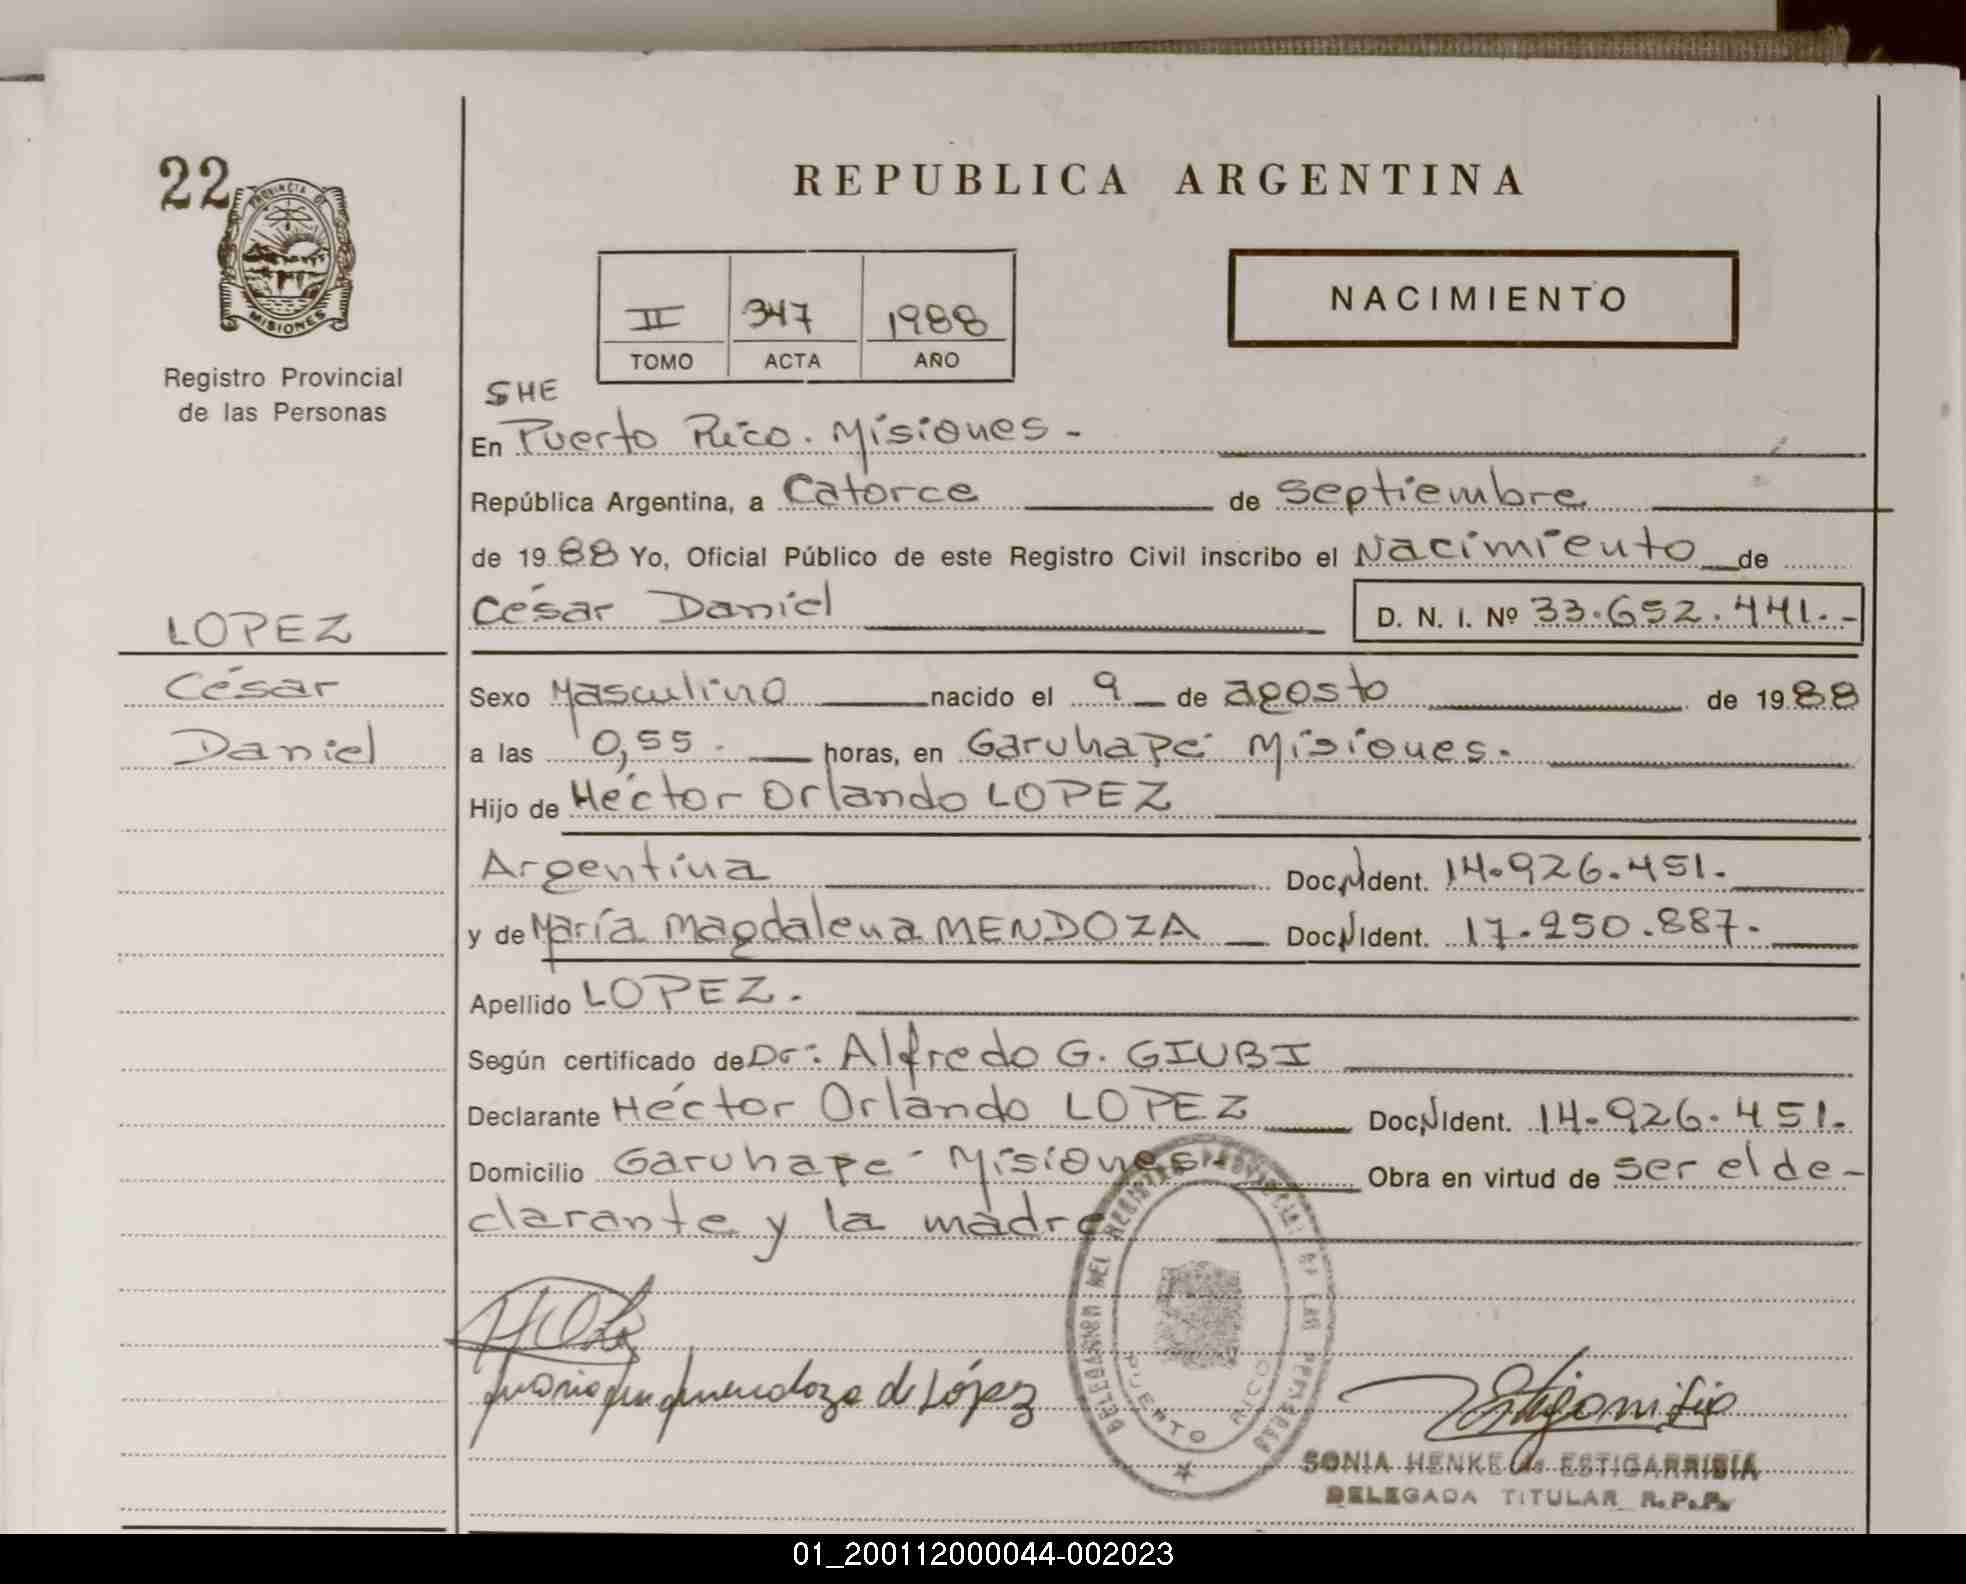 22
PROVINCIA DE
MISIONES
Registro Provincial
de las Personas
LOPEZ
César
Daniel
REPUBLICA ARGENTINA
II 347 1988
TOMO ACTA AÑO
NACIMIENTO
SHE
En Puerto Rico. Misiones -
República Argentina, a Catorce de septiembre
de 1988 Yo, Oficial Público de este Registro Civil inscribo el Nacimiento de
César Daniel D. N. I. Nº 33.652.441.-
Sexo Masculino nacido el 9 de agosto de 1988
a las 0,55. horas, en Garuhapé Misiones.
Hijo de Héctor Orlando LOPEZ
Argentina Doc. N Ident. 14.926.451.
y de María Magdalena MENDOZA Doc. N Ident. 17.250.887.
Apellido LOPEZ.
Según certificado de Dr: Alfredo G. GIUBI
Declarante Héctor Orlando LOPEZ Doc. N Ident. 14.926.451.
Domicilio Garuhape - Misiones - Obra en virtud de ser el de-
clarante y la madre
DELEGACION DEL REGISTRO PROVINCIAL DE LAS PERSONAS
PUERTO RICO
mendoza de López
SONIA HENKE de ESTIGARRIBIA
DELEGADA TITULAR R.P.P.
01_200112000044-002023